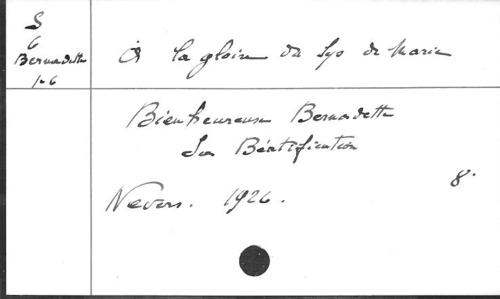 S
6
Bernadette
1-6
A la gloire du Lys de Marie
Bienheureuse Bernadette
Sa Béatification
8°
Nevers. 1926.